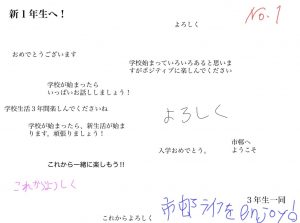 新1年生へ！
No.1
よろしく
おめでとうございます
学校始まっていろいろあると思いま
すがポジティブに楽しんでください
学校が始まったら
いっぱいお話ししましょう！
学校生活3年間楽しんでくださいね
よろしく
学校が始まったら、新生活が始ま
ります。頑張りましょう！
市邨へ
ようこそ
入学おめでとう。
これから一緒に楽しもう!!
これからよろしく
3年生一同
市邨ライフを enjoy!
これからよろしく